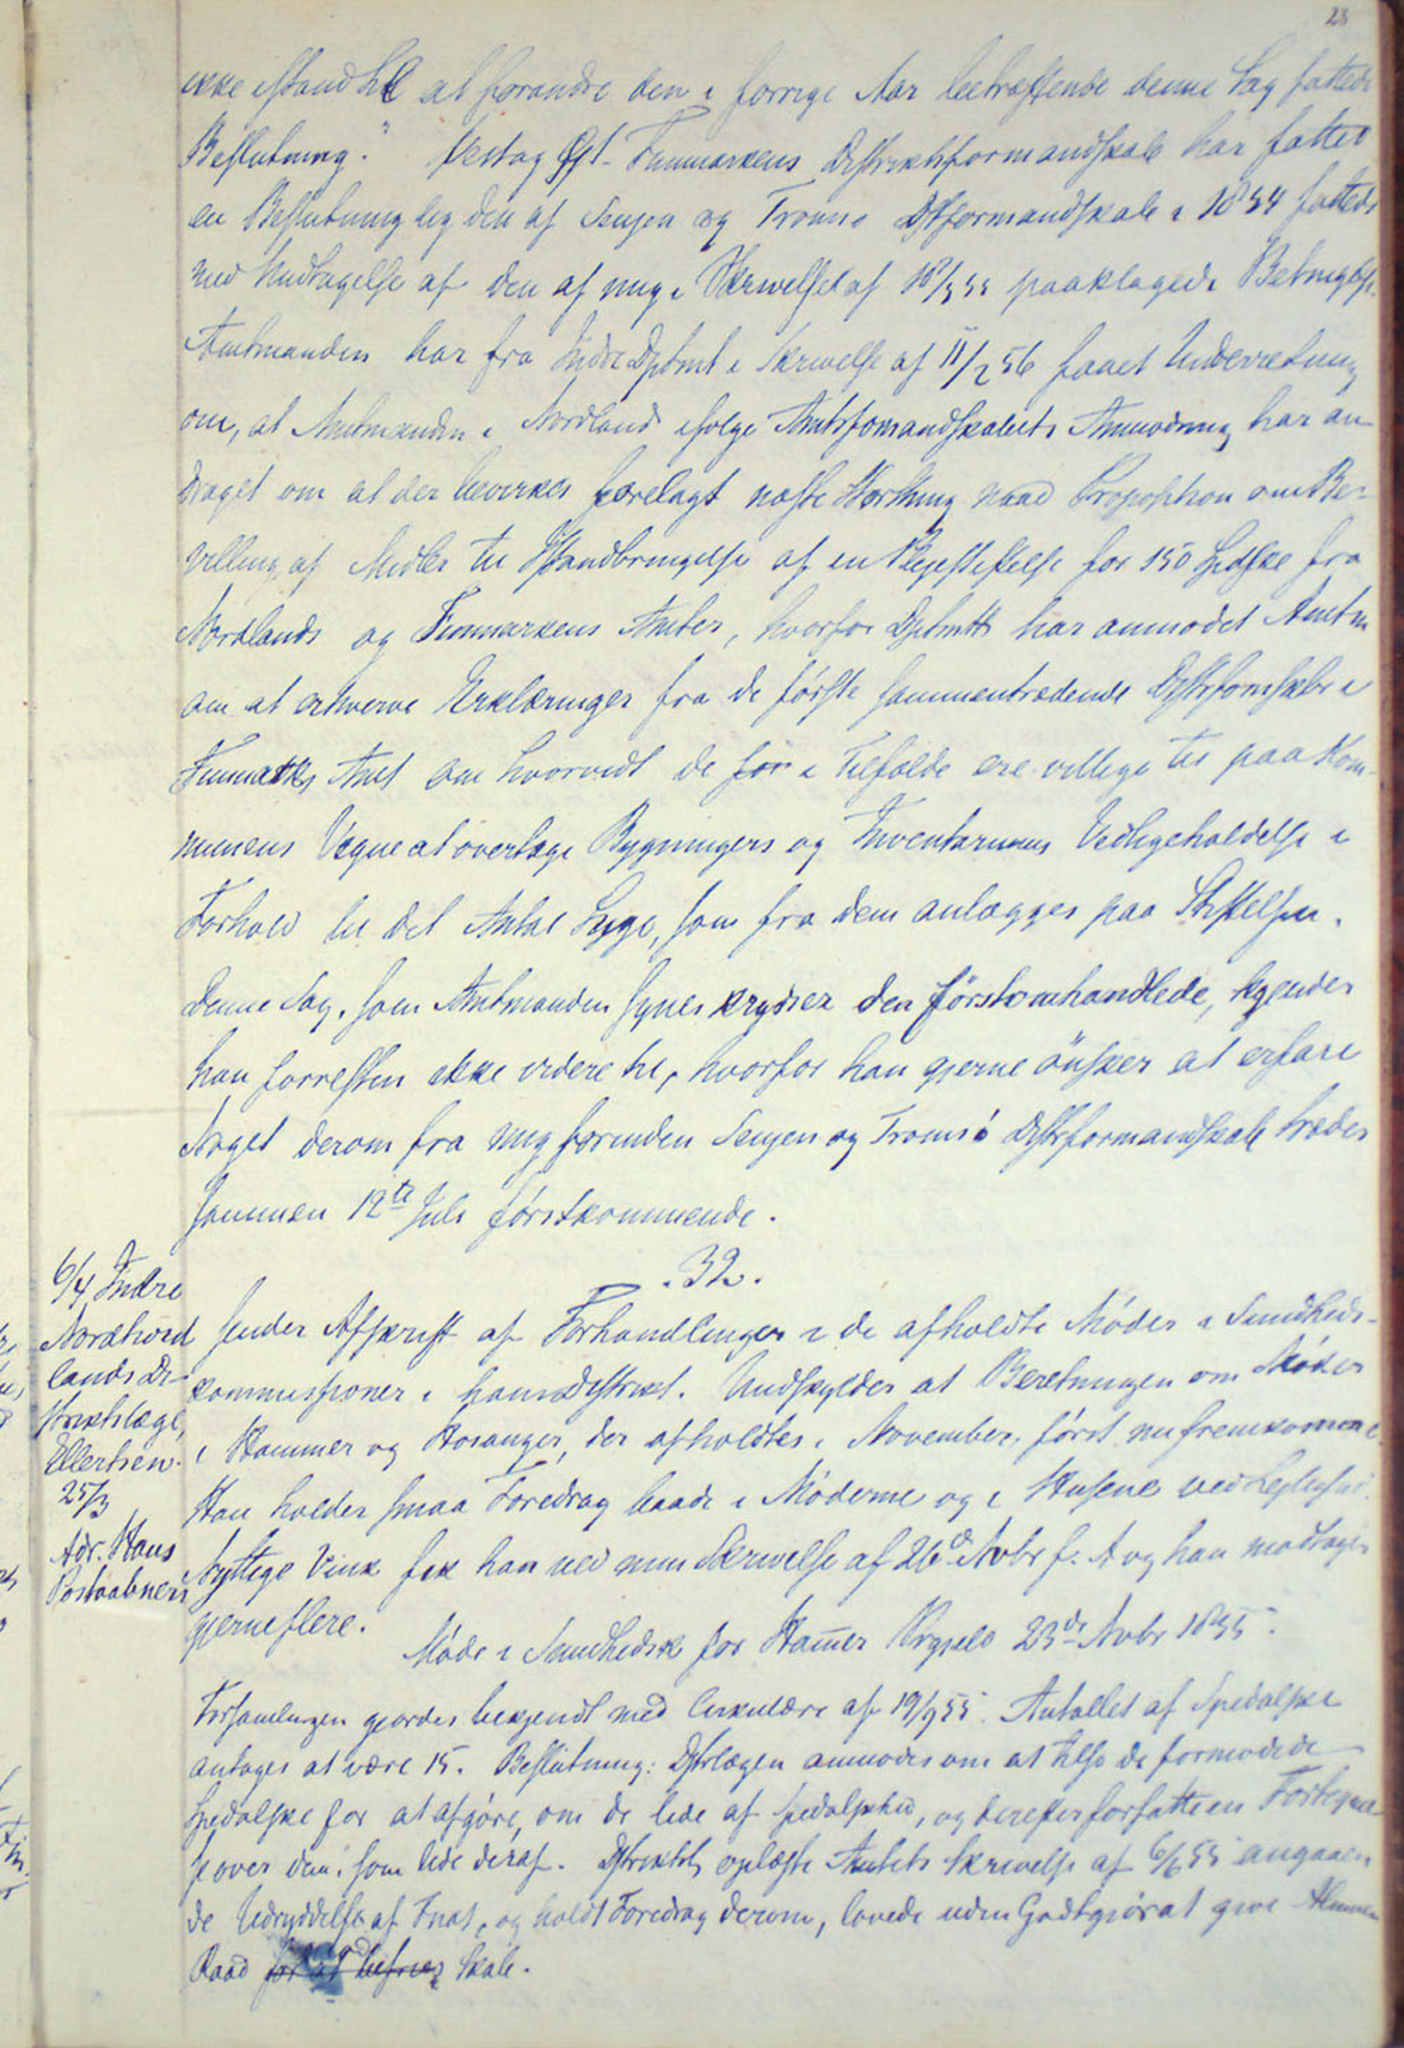 23
ikke istand til at forandre den i forrige Aar betræffende denne Sag fattede
Beslutning." Vestog Øst-Finmarkens Distriktsformandskab har fattet
en Beslutning lig den af Senjen og Tromsø Dsformandskab i 1854 fattede
med Undtagelse af den af mig i Skrivelse af 18/5 55 paaklagede Betingelse.
Amtmanden har fra Indre Dptmt i Skrivelse af 11/2 56 faaet Underretning
om, at Amtmanden i Nordland ifølge Amtsfomandskabets Anmodning har an-
draget om at der bevirkes forelagt næste Storthing naad Proposition om Be-
villing af Midler til Istandbringelse af en Plejestiftelse for 150 Spdske fra
Nordlands og Finmarkens Amter, hvorfor Dptmtt har anmodet Amtm
om at erhverve Erklæringer fra de første sammentrædende Distrformskber i
Finmarks Amt om hvorvidt de for i Tilfælde ere villige til paa Kom-
munens Vegne at overtage Bygningers og Inventariums Vedligeholdelse i
Forhold til det Antal Syge, som fra dem anlægges paa Stiftelsen.
Denne Sag, som Amtmanden synes krydser den förstomhandlede, kjender
han forresten ikke videre til, hvorfor han gjerne önsker at erfare
Noget derom fra mig forinden Senjen og Tromsö Distrformandskab træder
sammen 12te Juli førstkommende.
.32.
6/4 Indre
Nordhord
lands Di-
striktslæge,
Ellertsen.
25/3
Adr. Haus
Postaabneri
sender Afskrift af Forhandlinger i de afholdte Møder i Sundheds-
kommissioner i hans Distrikt. Undskylder at Beretningen om Møder
i Hammer og Hosanger, der afholdtes i November, først nu fremkomme.
Han holder smaa Foredrag baade i Møderne og i Husene ved Lejlighed.
Nyttige Vink fik han ved min Skrivelse af 26de Novbr f. A og han modtager
gjerne flere.
Møde i Sundhedsk for Ham̅er Prgjeld 23de Novbr 1855.
Forsamlingen gjordes bekjendt med Cirkulære af 19/9 55. Antallet af Spedalske
antages at være 15. Beslutning: Dstrlægen anmodes om at tilse de formodede
Spedalske for at afgöre, om de lide af Spedalskhed, og derefter forfatte en Fortegnel-
se over dem, som lide deraf. Distriktsl oplæste Amtets Skrivelse af 6/6 55 angaaen-
de Udryddelse af Fnat, og holdt Foredrag derom, lovede uden Godtgjörat give Almuen
Raad for at befries Skab.